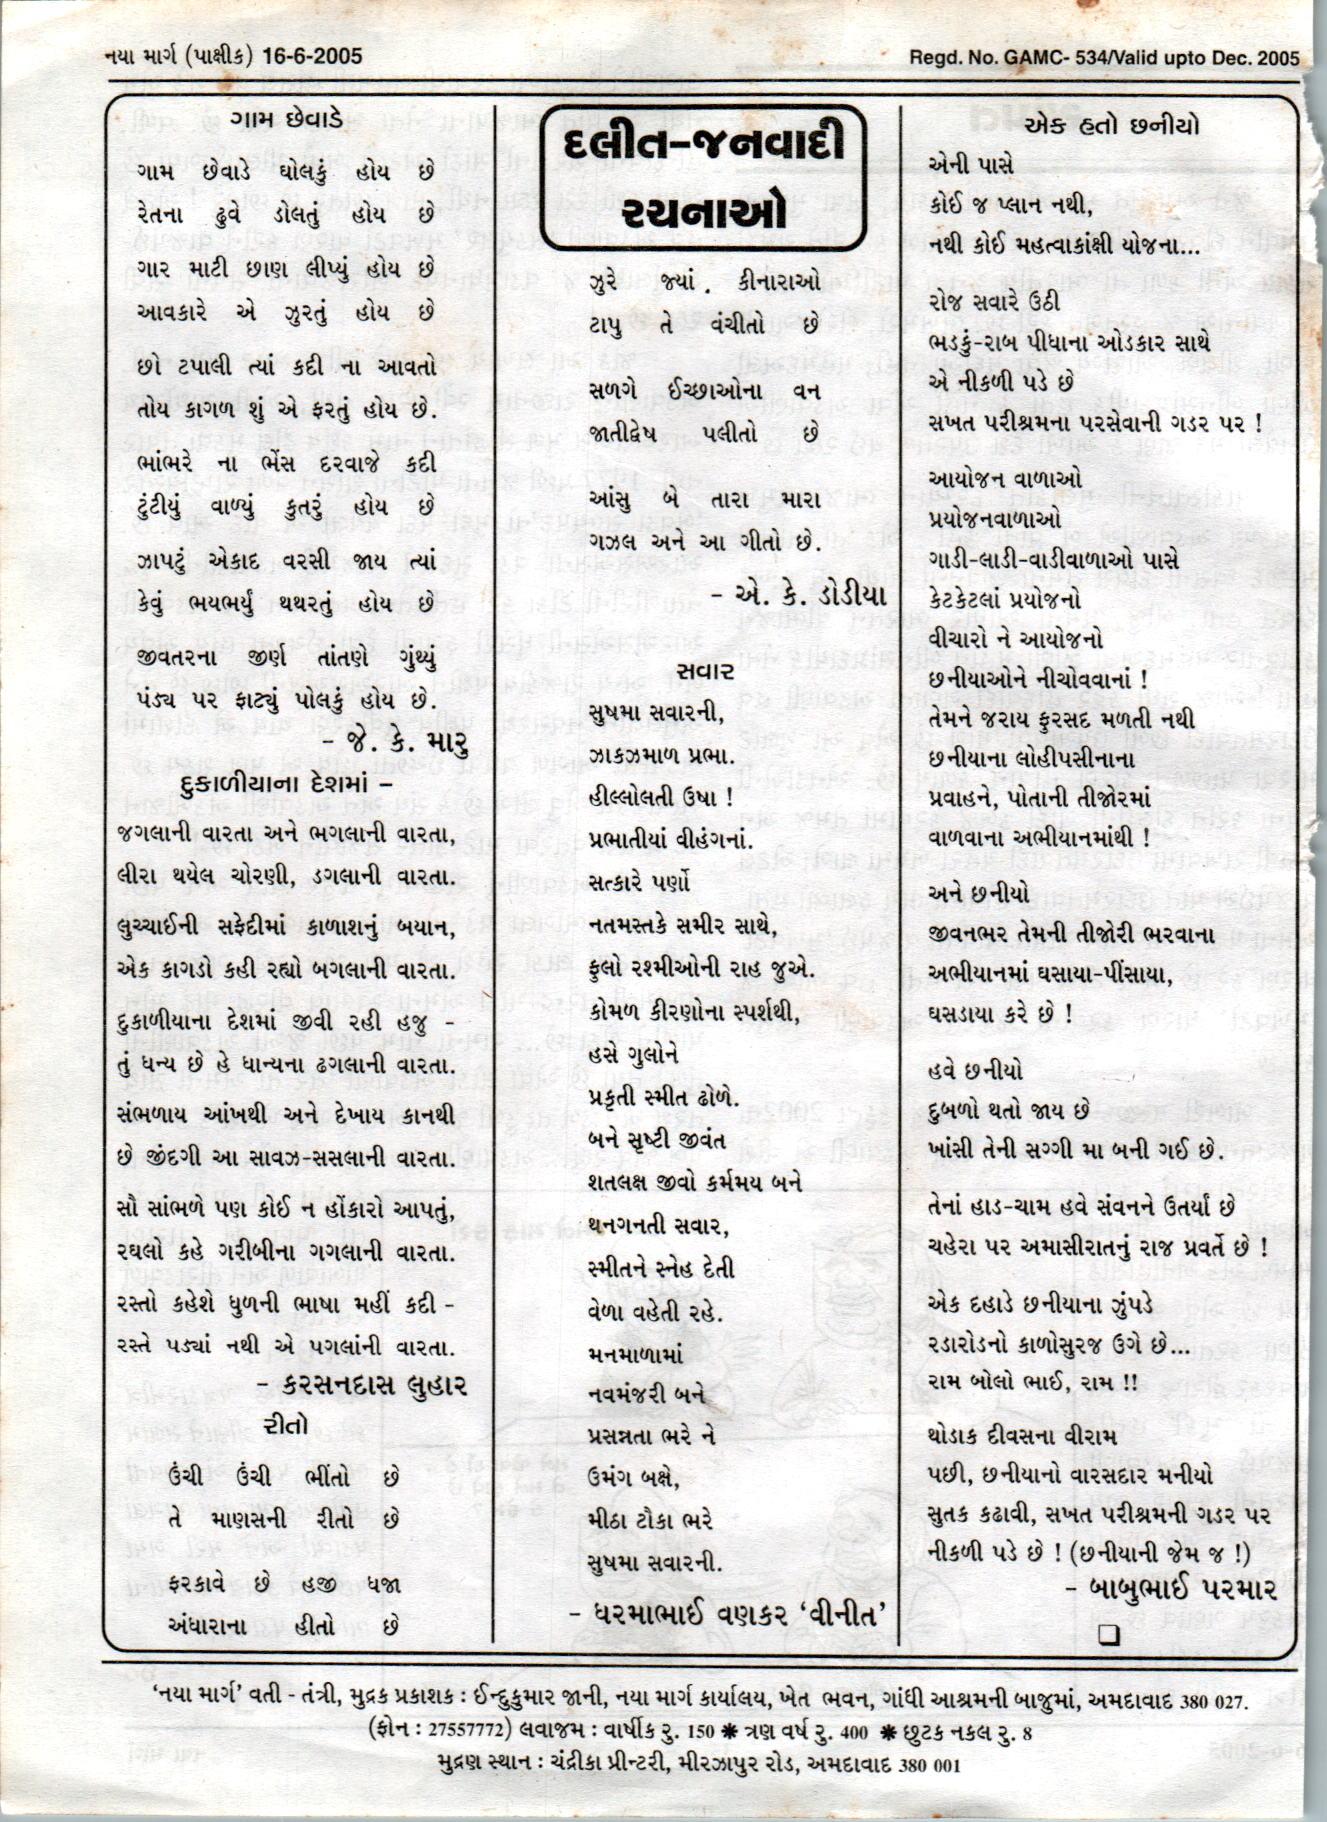 નયા માર્ગ (પાક્ષીક) 16-6-2005
Regd. No. GAMC- 534/Valid upto Dec. 2005
ગામ છેવાડે
ગામ છેવાડે ઘોલકું હોય છે
રેતના ઢુવે ડોલતું હોય છે
ગાર માટી છાણ લીપ્યું હોય છે
આવકારે એ ઝુરતું હોય છે
છો ટપાલી ત્યાં કદી ના આવતો
તોય કાગળ શું એ ફરતું હોય છે.
ભાંભરે ના ભેંસ દરવાજે કદી
ટુંટીયું વાળ્યું કુતરું હોય છે
ઝાપટું એકાદ વરસી જાય ત્યાં
કેવું ભયભર્યું થથરતું હોય છે
જીવતરના જીર્ણ તાંતણે ગુંથ્યું
પંડ્ય પર ફાટ્યું પોલકું હોય છે.
- જે. કે. મારુ
દુકાળીયાના દેશમાં –
જગલાની વારતા અને ભગલાની વારતા,
લીરા થયેલ ચોરણી, ડગલાની વારતા.
લુચ્ચાઈની સફેદીમાં કાળાશનું બયાન,
એક કાગડો કહી રહ્યો બગલાની વારતા.
દુકાળીયાના દેશમાં જીવી રહી હજુ -
તું ધન્ય છે હે ધાન્યના ઢગલાની વારતા.
સંભળાય આંખથી અને દેખાય કાનથી
છે જીંદગી આ સાવઝ-સસલાની વારતા.
સૌ સાંભળે પણ કોઈ ન હોંકારો આપતું,
રઘલો કહે ગરીબીના ગગલાની વારતા.
રસ્તો કહેશે ધુળની ભાષા મહીં કદી -
રસ્તે પડ્યાં નથી એ પગલાંની વારતા.
- કરસનદાસ લુહાર
રીતો
ઉંચી ઉંચી ભીંતો છે
તે માણસની રીતો છે
ફરકાવે છે હજી ધજા
અંધારાના હીતો છે
દલીત-જનવાદી
રચનાઓ
ઝુરે જ્યાં . કીનારાઓ
ટાપુ તે વંચીતો છે
સળગે ઈચ્છાઓના વન
જાતીદ્વેષ પલીતો છે
આંસુ બે તારા મારા
ગઝલ અને આ ગીતો છે.
- એ. કે. ડોડીયા
સવાર
સુષમા સવારની,
ઝાકઝમાળ પ્રભા.
હીલ્લોલતી ઉષા !
પ્રભાતીયાં વીહંગનાં.
સત્કારે પર્ણો
નતમસ્તકે સમીર સાથે,
ફુલો રશ્મીઓની રાહ જુએ.
કોમળ કીરણોના સ્પર્શથી,
હસે ગુલોને
પ્રકૃતી સ્મીત ઢોળે.
બને સૃષ્ટી જીવંત
શતલક્ષ જીવો કર્મમય બને
થનગનતી સવાર,
સ્મીતને સ્નેહ દેતી
વેળા વહેતી રહે.
મનમાળામાં
નવમંજરી બને
પ્રસન્નતા ભરે ને
ઉમંગ બક્ષે,
મીઠા ટૌકા ભરે
સુષમા સવારની.
- ધરમાભાઈ વણકર ‘વીનીત’
એક હતો છનીયો
એની પાસે
કોઈ જ પ્લાન નથી,
નથી કોઈ મહત્વાકાંક્ષી યોજના...
રોજ સવારે ઉઠી
ભડકું-રાબ પીધાના ઓડકાર સાથે
એ નીકળી પડે છે
સખત પરીશ્રમના પરસેવાની ગડર પર !
આયોજન વાળાઓ
પ્રયોજનવાળાઓ
ગાડી-લાડી-વાડીવાળાઓ પાસે
કેટકેટલાં પ્રયોજનો
વીચારો ને આયોજનો
છનીયાઓને નીચોવવાનાં !
તેમને જરાય ફુરસદ મળતી નથી
છનીયાના લોહીપસીનાના
પ્રવાહને, પોતાની તીજોરમાં
વાળવાના અભીયાનમાંથી !
અને છનીયો
જીવનભર તેમની તીજોરી ભરવાના
અભીયાનમાં ઘસાયા-પીંસાયા,
ઘસડાયા કરે છે !
હવે છનીયો
દુબળો થતો જાય છે
ખાંસી તેની સગ્ગી મા બની ગઈ છે.
તેનાં હાડ-ચામ હવે સંવનને ઉતર્યાં છે
ચહેરા પર અમાસીરાતનું રાજ પ્રવર્તે છે !
એક દહાડે છનીયાના ઝુંપડે
રડારોડનો કાળોસુરજ ઉગે છે...
રામ બોલો ભાઈ, રામ !!
થોડાક દીવસના વીરામ
પછી, છનીયાનો વારસદાર મનીયો
સુતક કઢાવી, સખત પરીશ્રમની ગડર પર
નીકળી પડે છે ! (છનીયાની જેમ જ !)
- બાબુભાઈ પરમાર
‘નયા માર્ગ’ વતી - તંત્રી, મુદ્રક પ્રકાશક : ઈન્દુકુમાર જાની, નયા માર્ગ કાર્યાલય, ખેત ભવન, ગાંધી આશ્રમની બાજુમાં, અમદાવાદ 380 027.
(ફોન : 27557772) લવાજમ : વાર્ષીક રુ. 150 ✱ ત્રણ વર્ષ રુ. 400 ✱ છુટક નકલ રુ. 8
મુદ્રણ સ્થાન : ચંદ્રીકા પ્રીન્ટરી, મીરઝાપુર રોડ, અમદાવાદ 380 001